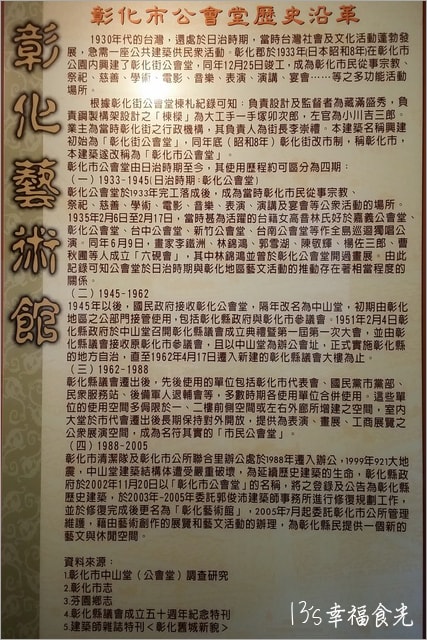 彰化藝術館
彰化市公會堂歷史沿革
1930年代的台灣，還處於日治時期，當時台灣社會及文化活動蓬勃發
展，急需一座公共建築供民眾活動。彰化郡於1933年日本昭和8年在彰化市
公園內興建了彰化街公會堂，同年12月25日竣工，成為彰化市民從事宗教、
祭祀、慈善、學術、電影、音樂、表演、演講、宴會……等之多功能活動
場所。
根據彰化街公會堂棟札紀錄可知：負責設計及監督者為藏滿盛秀，負
責鋼製構架設計之「棟樑」為大工手一手塚卯次郎，左官為小川吉三郎。
業主為當時彰化街之行政機構，其負責人為街長李崇禮。本建築名稱興建
初始為「彰化街公會堂」，同年底（昭和8年）彰化街改市制，稱彰化市，
本建築遂改稱為「彰化市公會堂」。
彰化市公會堂由日治時期至今，其使用歷程約可區分為四期：
(一）1933-1945(日治時期：彰化公會堂)
彰化公會堂於1933年完工落成後，成為當時彰化市民從事宗教、
祭祀、慈善、學術、電影、音樂、表演、演講及宴會等公眾活動的場所。
1935年2月6日至2月17日，當時甚為活躍的台籍女高音林氏好於嘉義公會堂、
彰化公會堂、台中公會堂、新竹公會堂、台南公會堂等作全島巡迴獨唱公
演。同年6月9日，畫家李鐵洲、林錦鴻、郭雪湖、陳敬輝、楊佐三郎、曹
秋圃等人成立「六硯會」，其中林錦鴻並曾於彰化公會堂開過畫展。由此
記錄可知公會堂於日治時期與彰化地區藝文活動的推動存在著相當程度的
關係。
(二）1945-1962
1945年以後，國民政府接收彰化公會堂，隔年改名為中山堂，初期由彰化
地區之公部門接管使用，包括彰化縣政府與彰化市參議會。1951年2月4日彰
化縣政府於中山堂召開彰化縣議會成立典禮暨第一屆第一次大會，並由彰
化縣議會接收原彰化市參議會，且以中山堂為辦公會址，正式實施彰化縣
的地方自治，直至1962年4月17日遷入新建的彰化縣議會大樓為止。
(三）1962-1988
彰化縣議會遷出後，先後使用的單位包括彰化市代表會、國民黨市黨部、
民眾服務站、後備軍人退輔會等，多數時期各使用單位合併使用。這些單
位的使用空間多侷限於一、二樓前側空間或左右外廊所增建之空間，室內
大堂於市代會遷出後長期保持對外開放，提供為表演、畫展、工商展覽之
公眾展演空間，成為名符其實的「市民公會堂」。
(四）1988-2005
彰化市清潔隊及彰化市公所聯合里辦公處於1988年遷入辦公，1999年921大地
震，中山堂建築結構体遭受嚴重破壞，為延續歷史建築的生命，彰化縣政
府於2002年11月20日以「彰化市公會堂」的名稱，將之登錄及公告為彰化縣
歷史建築，於2003年-2005年委託郭俊沛建築師事務所進行修復規劃工作，
並於修復完成後更名為「彰化藝術館」，2005年7月起委託彰化市公所管理
維護，藉由藝術創作的展覽和藝文活動的辦理，為彰化縣民提供一個新的
藝文與休閒空間。
資料來源：
1.彰化市中山堂（公會堂）調查研究
2.彰化市志
3.芬園鄉志
4.彰化縣議會成立五十週年紀念特刊
5.建築師雜誌特刊<彰化舊城新貌>
13's幸福食光